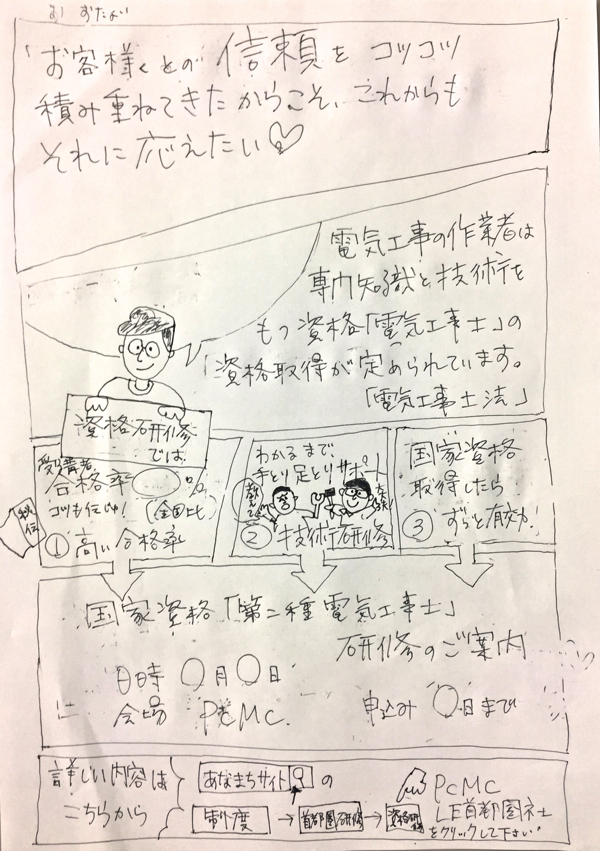 「お客様との信頼をコツコツ
積み重ねてきたからこそ、これからも
それに応えたい♡
電気工事の作業者は
専門知識と技術を
もつ資格「電気工事士」の
「資格取得が定められています。
「電気工事士法」
資格研修
では
受講者
合格率 %
コツも伝授! (全国比)
秘伝
① 高い合格率
わかるまで、
手とり足とりサポート
② 技術研修
国家資格
取得したら
③ ずっと有効!
国家資格「第二種電気工事士」
研修のご案内
日時 〇月〇日
会場 PCMC. 申込み 〇日まで
詳しい内容は
こちらから
あなまちサイト の
制度 → 首都圏研修 → 資格研修
PCMC
LE首都圏本社
をクリックして下さい